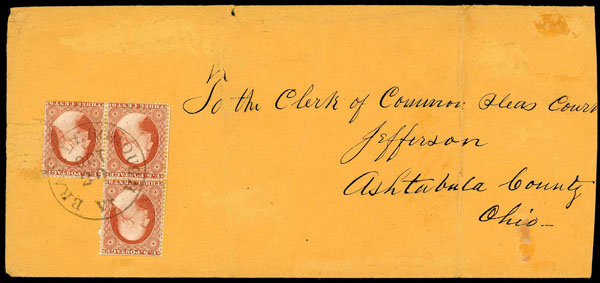 To the Clerk of Common Pleas Court
Jefferson
Ashtabula County
Ohio
THREE CENTS
THREE CENTS
U.S. POSTAGE
U.S. POSTAGE
THREE CENTS
U.S. POSTAGE